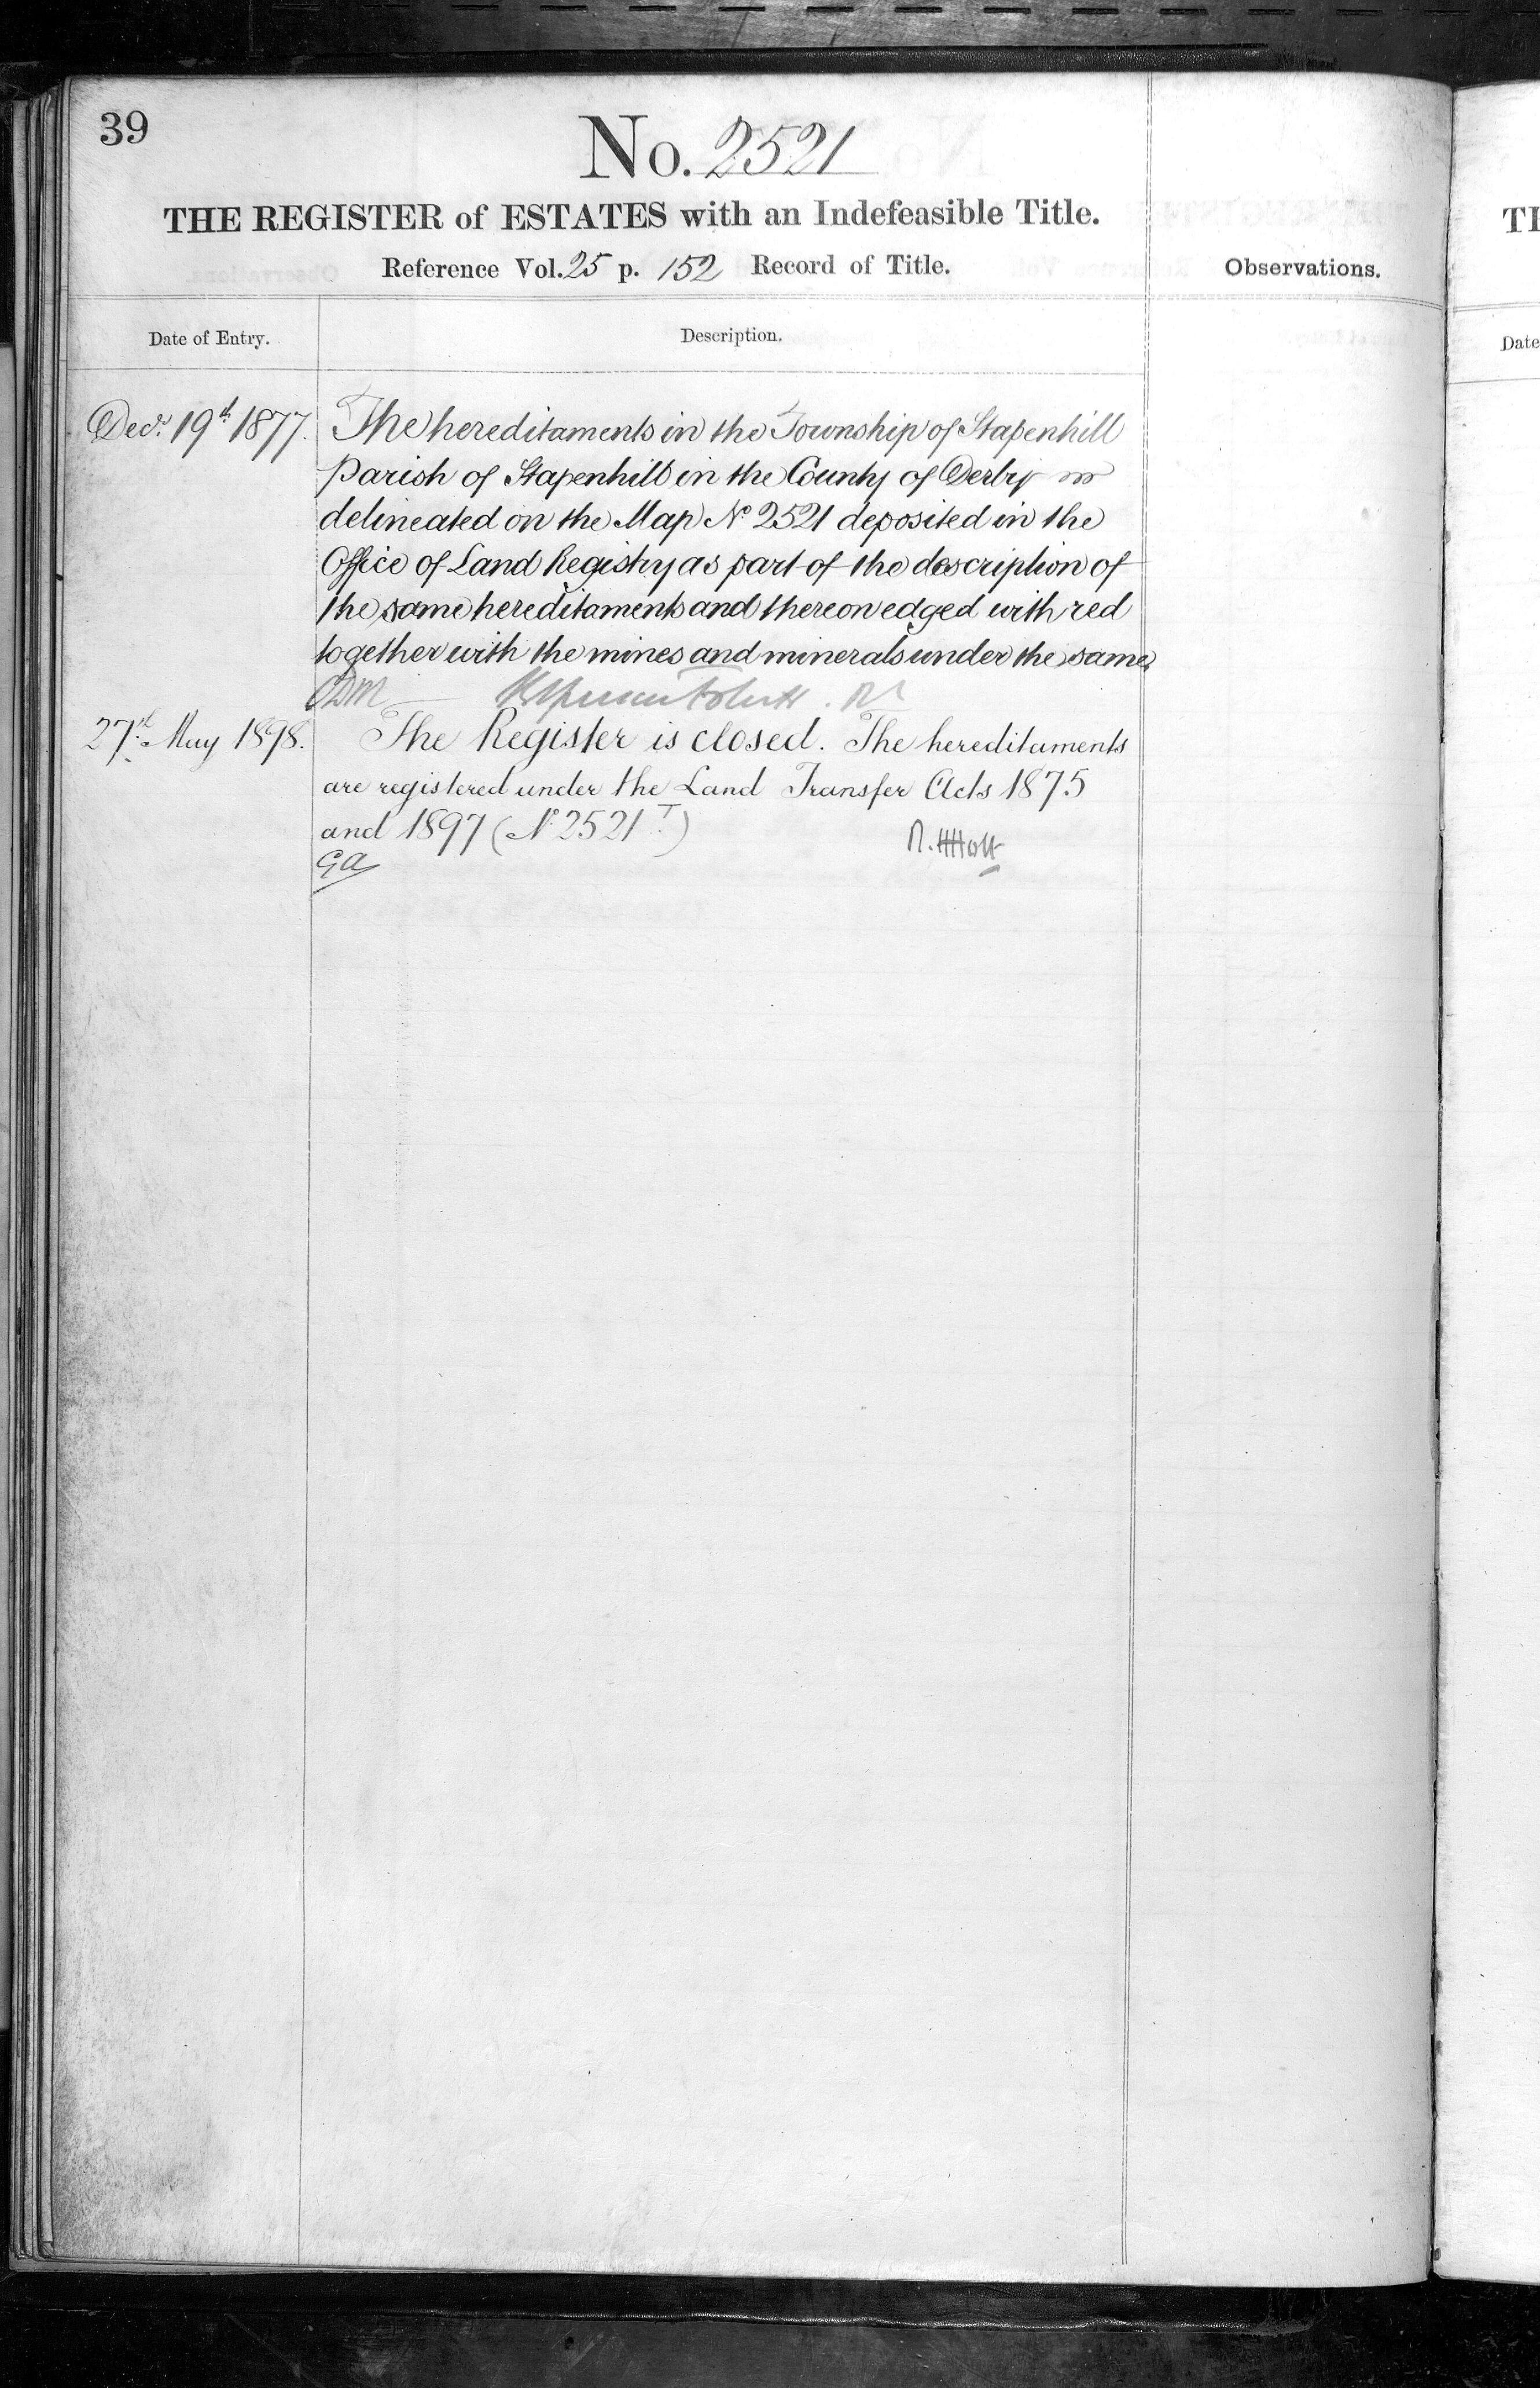 39
No. 2521
THE REGISTER of ESTATES with an Indefeasible Title.
Reference Vol. 25 p. 152 Record of Title.
Observations.
Date of Entry.
Description.
Decr. 19th 1877. The hereditaments in the Township of Stapenhill
Parish of Stapenhill in the County of Derby
delineated on the Map No 2521 deposited in the
Office of Land Registry as part of the description of
the same hereditaments and thereon edged with red
together with the mines and minerals under the same
27th May 1898. The Register is closed. The hereditaments
are registered under the Land Transfer Acts 1875
and 1897 (No 2521 T.)
R. H Holt
GA
TI
Date